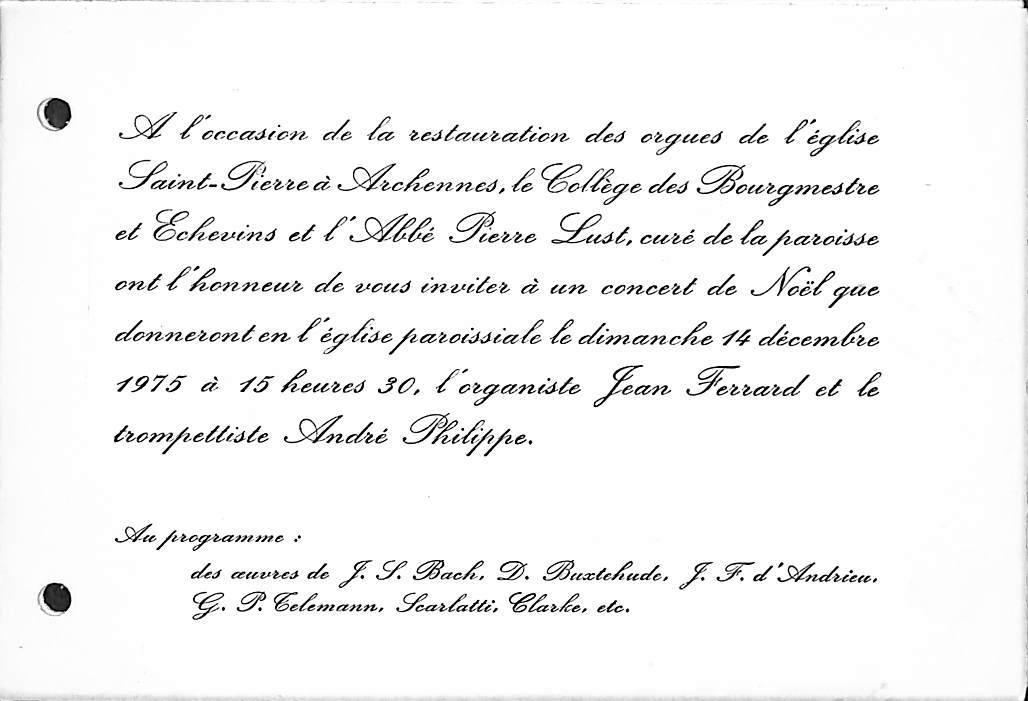 A l'occasion de la restauration des orgues de l'église
Saint-Pierre à Archennes, le Collège des Bourgmestre
et Echevins et l'Abbé Pierre Lust, curé de la paroisse
ont l'honneur de vous inviter à un concert de Noël que
donneront en l'église paroissiale le dimanche 14 décembre
1975 à 15 heures 30, l'organiste Jean Ferrard et le
trompettiste André Philippe.
Au programme :
des œuvres de J. S. Bach, D. Buxtehude, J. F. d'Andrieu,
G. P. Telemann, Scarlatti, Clarke, etc.